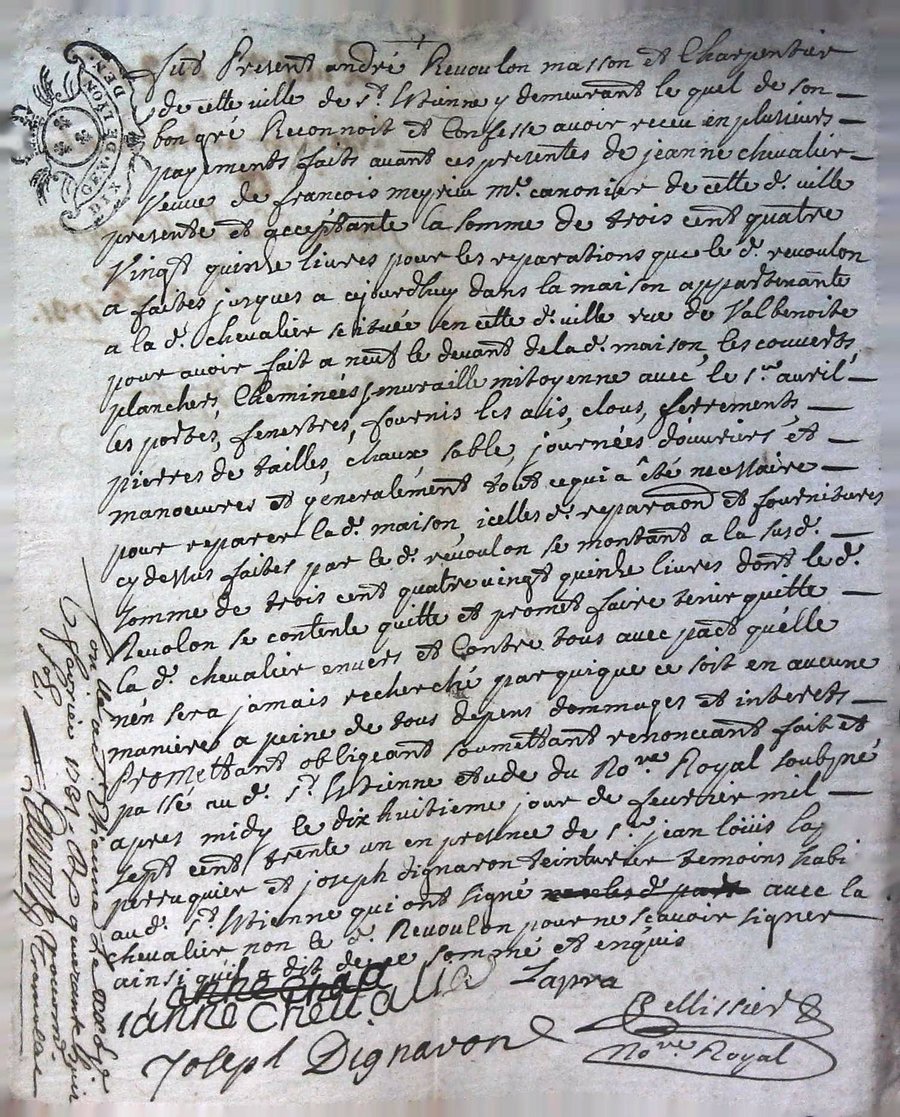 GENER. DE LYON.
DIX
fut Present andré Revoulon masson et Charpentier
de cette ville de st. Estienne y demeurant le quel de son
bon gré Reconnoit et Confesse avoir receu en plusieurs
payements faits avant ces presentes de jeanne chevalier
Veuve de francois meyrieu me. canonier de cette d. ville
presente et acceptante la somme de trois cent quatre
Vingt quinze livres pour les reparations que le d. revoulon
a faites jusques a ajourdhuy dans la maison appartenante
a la d. chevalier scituée en cette d. ville rue de Valbenoite
pour avoir fait a neuf le devant de la d. maison, les couverts,
planchers, Cheminées, muraille mitoyenne avec le sr. avril
les portes, fenestres, fournis les ais, clous, ferrements
pierres de tailles, chaux sable, journées d'ouvriers et
manoeuvres et generalement tout ce qui a été necessaire
pour reparer la d. maison, icelles d. reparaon et fournitures
cy dessus faites par le d. revoulon se montant a la susd.
somme de trois cent quatre vingt quinze livres dont le d.
Revolon se contente quitte et promet faire tenir quitte
la d. chevalier envers et Contre tous avec pact quelle
n'en sera jamais recherché par qui que ce soit en aucune
manieres a peine de tous depens dommages et interets
Promettant obligeant soumettant renonceant fait et
passé au d. st. Estienne etude du Nore. Royal soubsné
apres midy le dix huitieme jour de feuvrier mil
sept cent trente un en presence de sr. jean loüis lap
perruquier et joseph dignaron teinturier temoins habi
au d. st. Estienne qui ont signé avec la
chevalier non le d. Revoulon pour ne scavoir signer
ainsi qu'il a dit de ce sommé et enquis
ianne Chevallie
Lapra
Joseph Dignaron
Bellissier
Nore. Royal